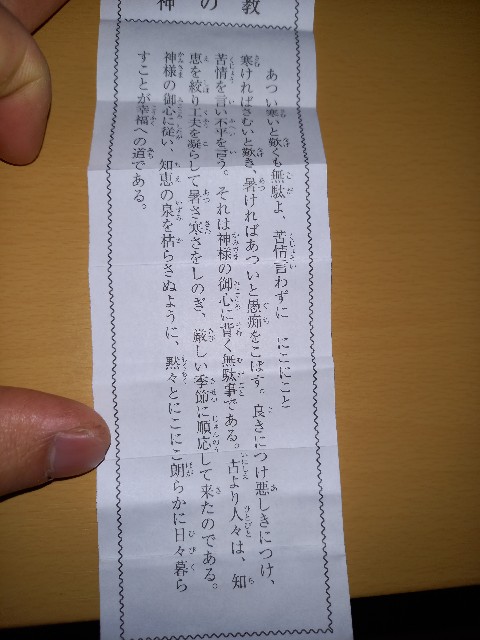 神の教
あつい寒いと歎くも無駄よ、苦情言わずに にこにこと
寒ければさむいと歎き、暑ければあついと愚痴をこぼす。良きにつけ悪しきにつけ、
苦情を言い不平を言う。それは神様の御心に背く無駄事である。古より人々は、知
恵を絞り工夫を凝らして暑さ寒さをしのぎ、厳しい季節に順応して来たのである。
神様の御心に従い、知恵の泉を枯らさぬように、黙々とにこにこ朗らかに日々暮ら
すことが幸福への道である。